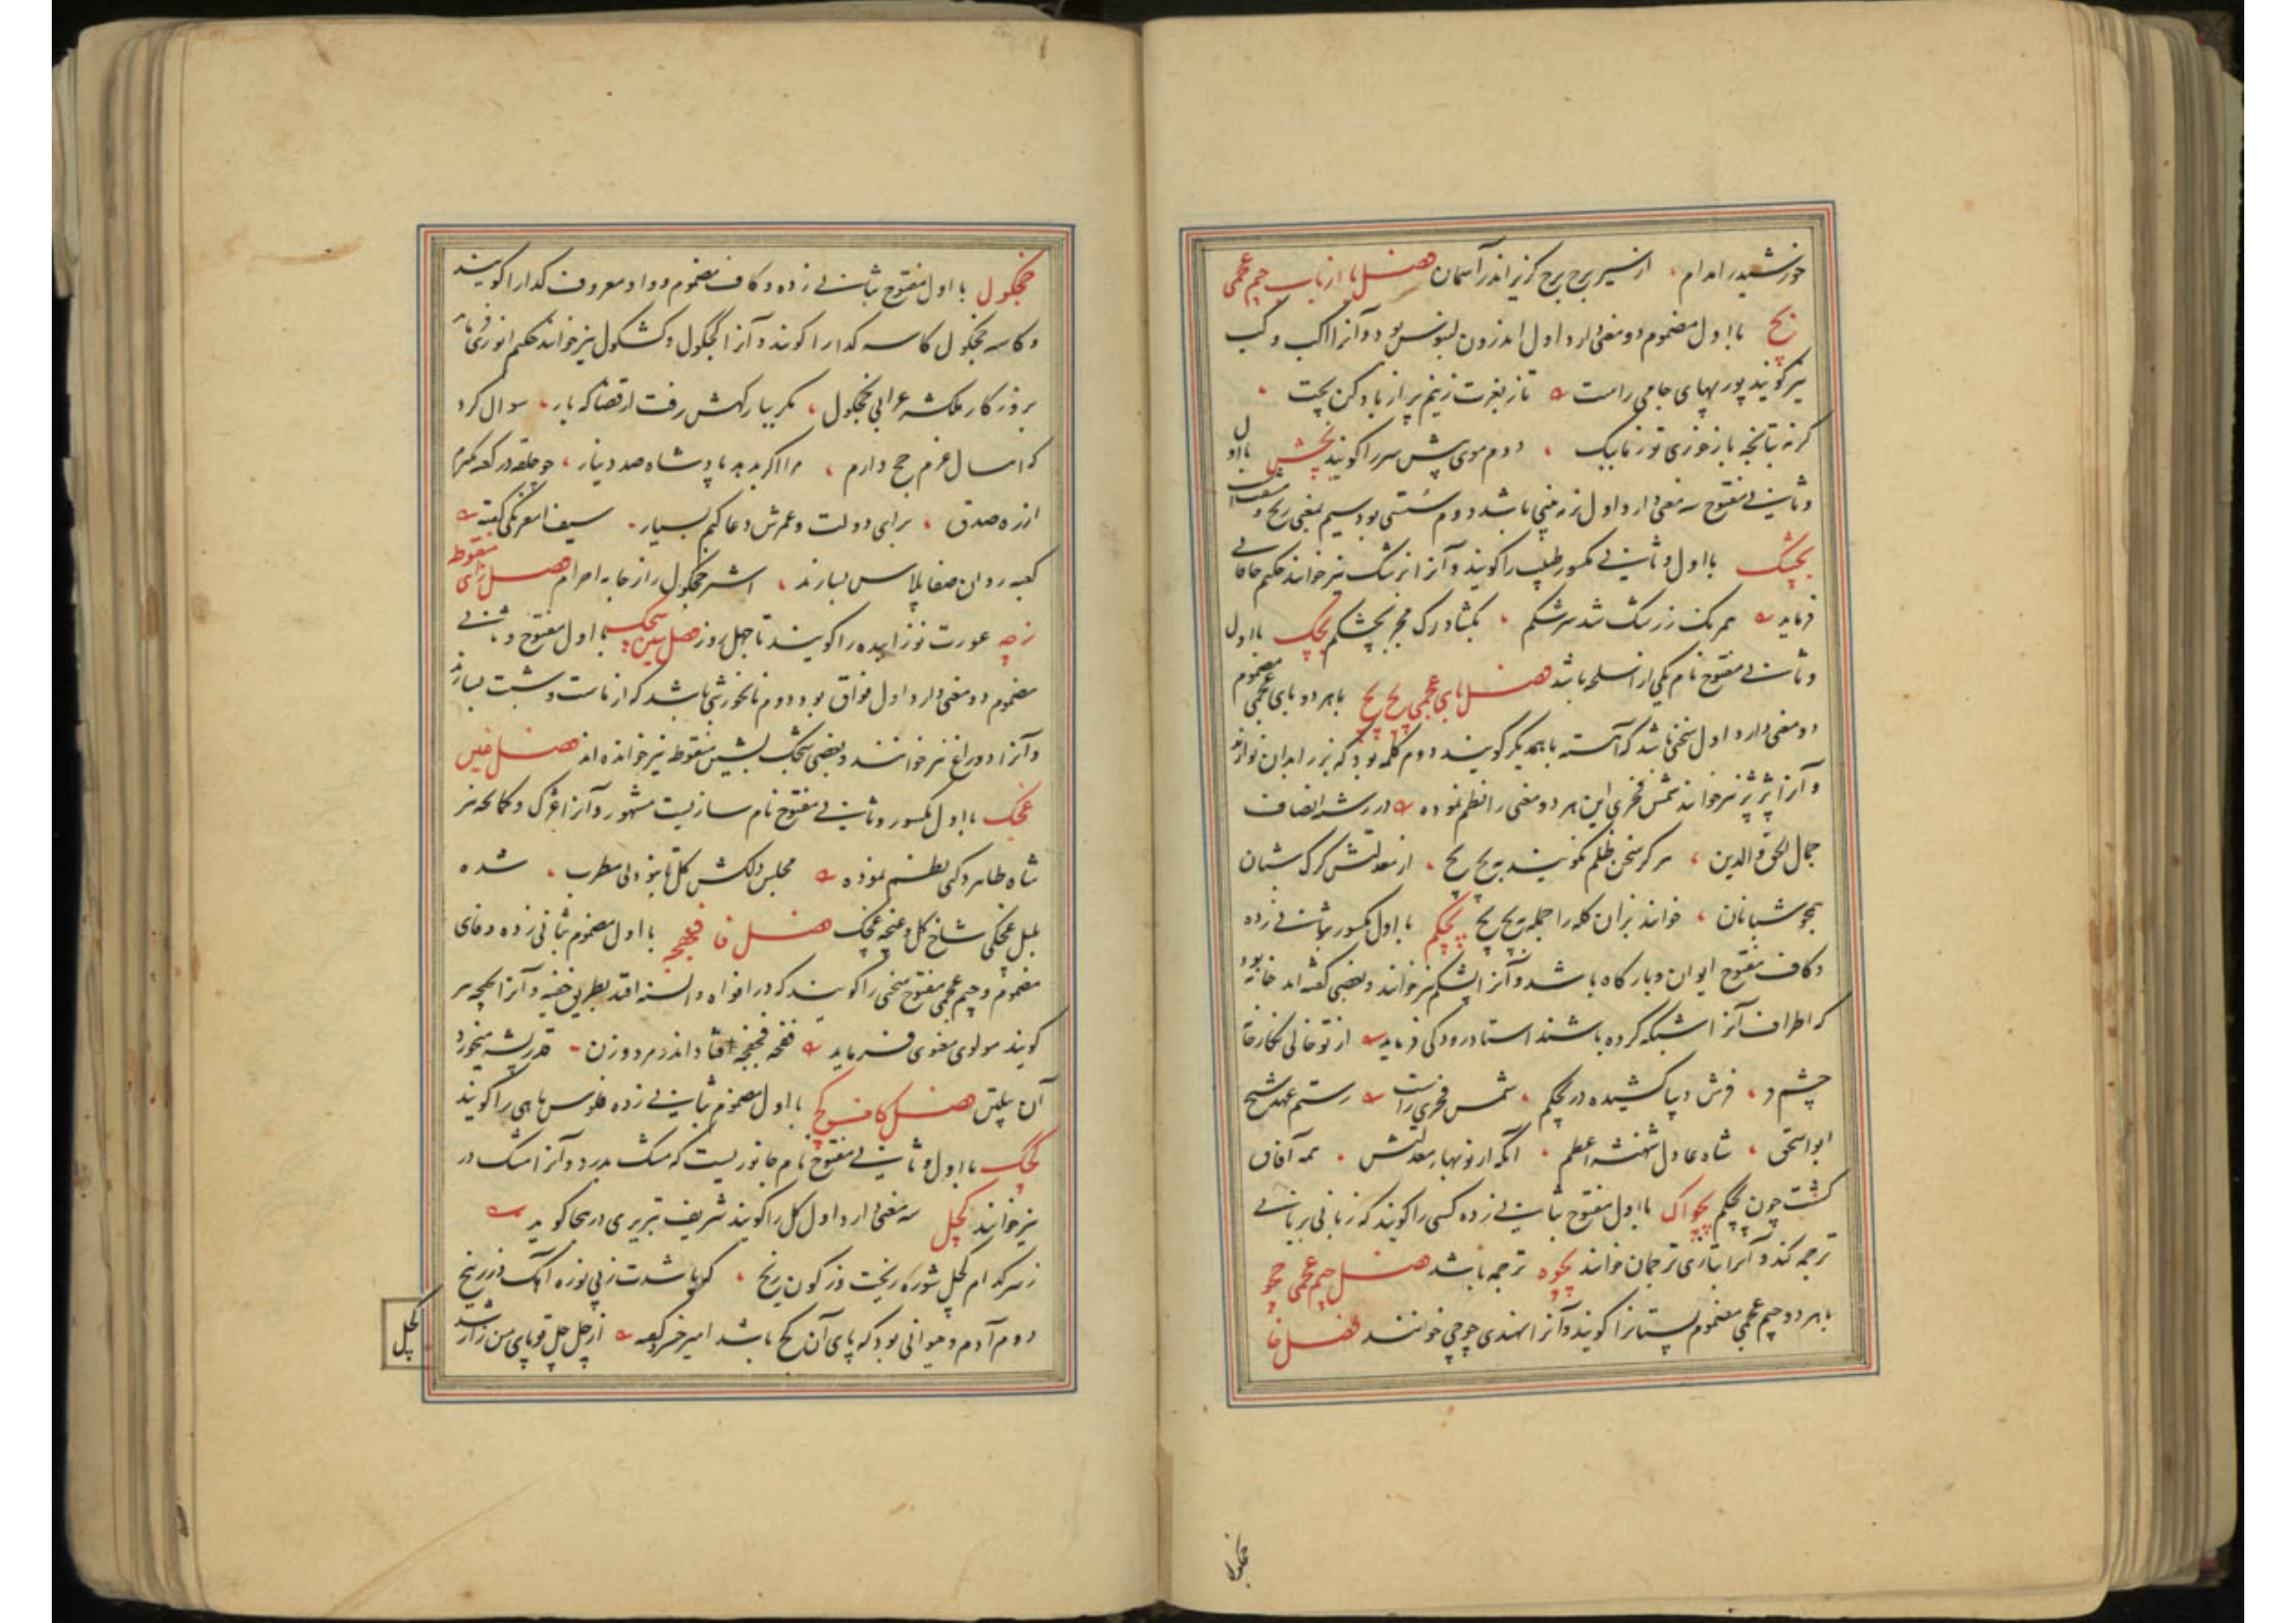 خورشید را مدام ، از سیر برج برج گریز اندر آسمان فصل با از باب جیم عجمی
بچ با اول مضموم دو معنی دارد اول اندرون لبوس بود و آنرا اکب و کب
نیز گویند پور بهای جامی راست
کرنه تپانچه بازخوری تو زنابیک ، دوم موی پیش سر را گویند بچش با اول
و ثانی مفتوح سه معنی دارد اول نرمه بینی باشد دوم سستی بود سیم بمعنی رنج و مشقت
بچشک با اول و ثانی مکسور طبیب را گویند و آنرا بزشک نیز خوانند حکیم خاقانی
فرماید شد سرشکم ، بکشاد رک مجر بچشکم بچک با اول
و ثانی مفتوح نام یکی از اسلحه باشد فصل بای عجمی پچ پچ با هر دو بای عجمی مضموم
دو معنی دارد اول سخنی باشد که آهسته با یکدیگر گویند دوم کلمه بود که بز را بدان نوازند
و آنرا پژپژ نیز خوانند شمس فخری این هر دو معنی را نظم نموده در رسته انصاف
جمال الحق و الدین ، هرگز سخن ظلم نگویند به پچ پچ ، از معدلتش گرگ شبان
همچو شبانان ، خواند بزان گله را جمله به پچ پچ پچکم با اول مکسور بثانی زده
و کاف مفتوح ایوان و بارگاه باشد و آنرا پشکم نیز خوانند و بعضی گفته اند خانه بود
که اطراف آنرا شبکه کرده باشند استاد رودکی فرماید از تو خالی نگارخانه
جم ، فرش دیبا کشیده در بچکم ، شمس فخری راست رستم عهد شیخ
ابواسحق ، شاه عادل شهنشه اعظم ، آنکه از نوبهار معدلتش ، همه آفاق
گشت چون پچکم پچواک با اول مفتوح بثانی زده کسی را گویند که زبانی بزبانی
ترجمه کند و آنرا بتازی ترجمان خوانند پچوه ترجمه باشد فصل جیم عجمی چچو
با هر دو جیم عجمی مضموم پستانرا گویند و آنرا بهندی چوچی خوانند فصل خا
خچکول
خچکول با اول مفتوح بثانی زده و کاف مضموم و واو معروف گدا را گویند
و کاسه خچکول کاسه گدا را گویند و آنرا کچکول و کشکول نیز خوانند حکیم انوری فرماید
بروزگار ملکشه عرابی خچکول ، مگر ببارگهش رفت از قضا گه بار ، سوال کرد
که امسال عزم حج دارم ، مرا اگر بدهد پادشاه صد دینار ، چو حلقه در کعبه بگیرم
از ره صدق ، برای دولت و عمرش دعا کنم بسیار ، سیف اسفرنگی گفته
کعبه روان صفا پلاس نسازند ، اشتر خچکول را ز جامه احرام فصل زای منقوطه
زچه عورت نوزاییده را گویند تا چهل روز فصل سین سچک با اول مفتوح و ثانی
مضموم دو معنی دارد اول فواق بود دوم نانخورشی باشد که از ماست و شبت بسازند
و آنرا دوراغ نیز خوانند و بعضی شچک بشین منقوط نیز خوانده اند فصل غین
غچک با اول مکسور و ثانی مفتوح نام سازیست مشهور و آنرا غژک و کمانچه نیز
شاه طاهر دکنی نظم نموده مجلس دلکش گل تا نبود بی مطرب ، شده
بلبل غچکی شاخ گل و غنچه غچک فصل فا فچفچه با اول مضموم بثانی زده و فای
مضموم و جیم عجمی مفتوح سخنی را گویند که در افواه و السنه افتد بطریق خفیه و آنرا
گویند مولوی معنوی فرماید فچفچه فتاد اندر مرد و زن
فصل کاف کچ با اول مضموم بثانی زده فلوس ماهی را گویند
کچک با اول و ثانی مفتوح نام جانوریست که مشک بدرد و آنرا مشک در
نیز خوانند کچل سه معنی دارد اول کل را گویند شریف تبریزی در هجا گوید
ز سر کدام کچل شوره ریخت در کون ریخ ، که باشدت ز پی نوره آهک و زرنیخ
دوم آدم و حیوانی بود که پای آن کج باشد امیر خسرو گفته
کچل